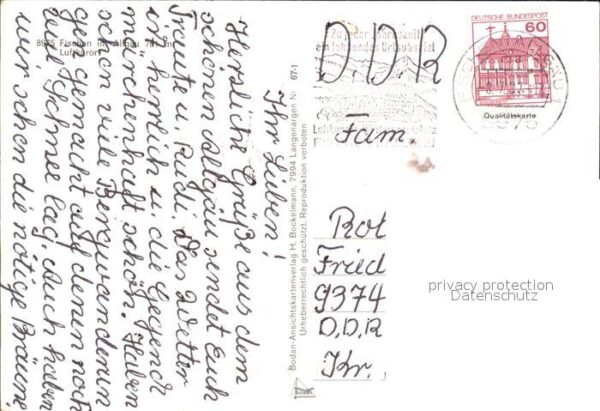 8975 Fischen im Allgäu 761 m
Luftkurort
Ihr Lieben!
Herzliche Grüße aus dem
schönen Allgäu sendet Euch
Traute u. Rudi. Das Wetter
ist herrlich u. die Gegend
märchenhaft schön. Haben
schon viele Bergwanderun
gen gemacht auf denen noch
viel Schnee lag. Auch haben
wir schon die nötige Bräune.
Bodan-Ansichtskartenverlag H. Bockelmann, 7994 Langenargen Nr. 67-1
Urheberrechtlich geschützt. Reproduktion verboten
DEUTSCHE BUNDESPOST
60
Zu jeder Jahreszeit
ein lohnendes Urlaubsziel
8975
Qualitätskarte
D.D.R
Fam.
Rot
Fried
9374
D.D.R
Kr.
privacy protection
Datenschutz